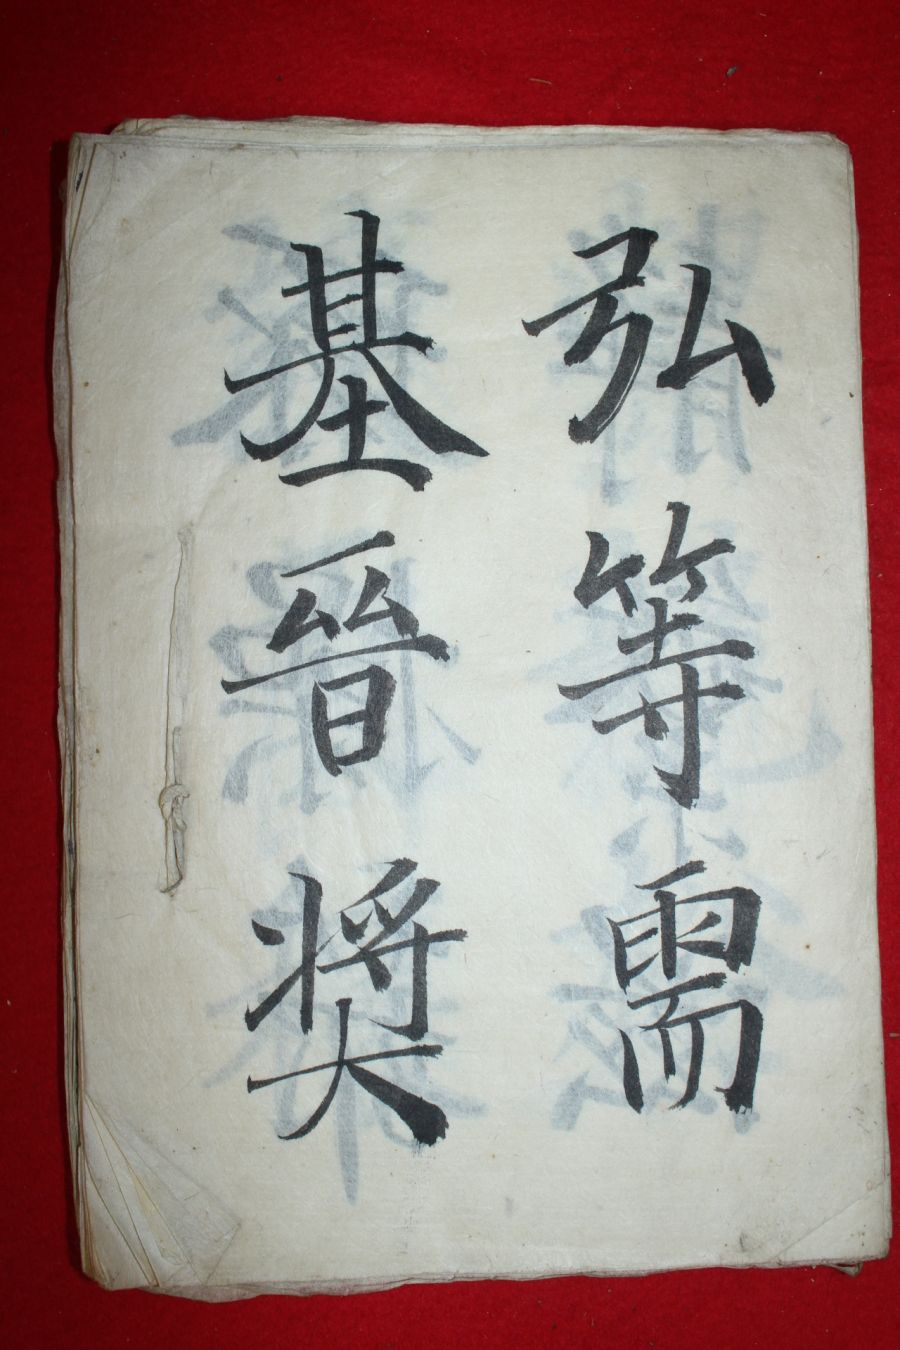 弘等需
基晉奬